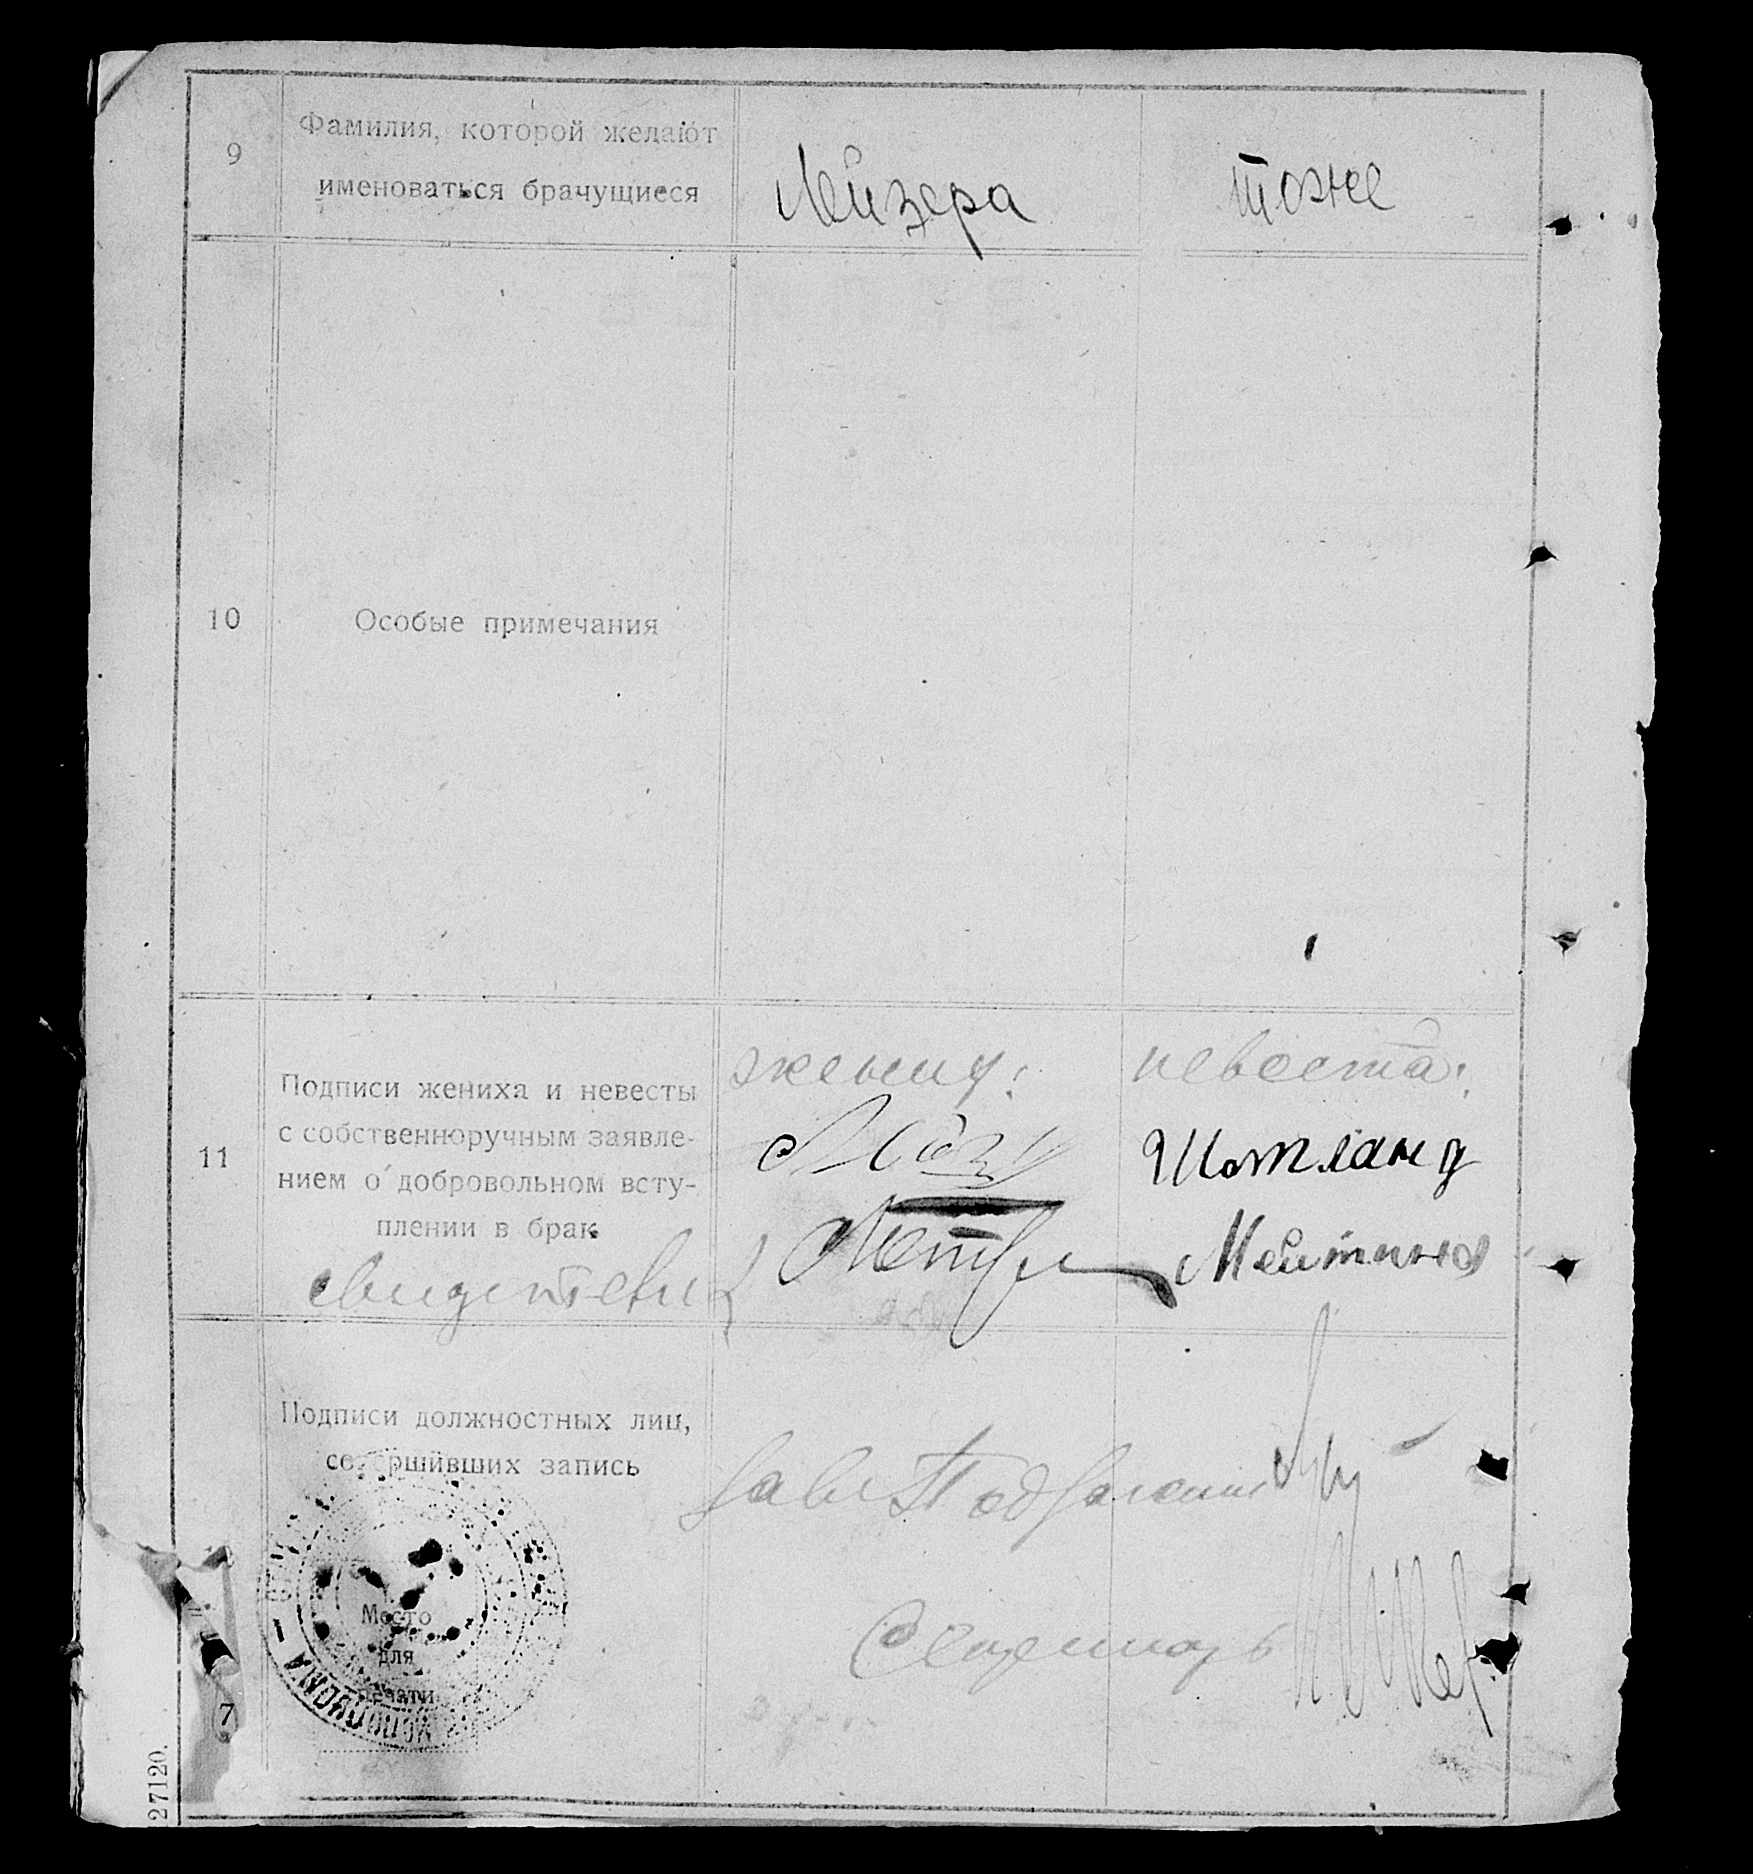 9
Фамилия, которой желают
именоваться брачущиеся
Лейзера
тоже
10
Особые примечания
11
Подписи жениха и невесты
с собственноручным заявле-
нием о добровольном всту-
плении в брак
жених:
невеста:
Шотланд
свидетели
Мейтина
Подписи должностных лиц,
совершивших запись
Секретарь
Место
для
печати
7
27120.